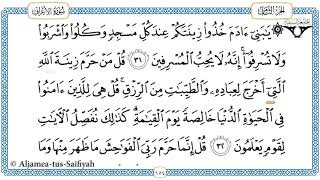 الجزء الثامن
سورة الأعراف
يَٰبَنِىٓ ءَادَمَ خُذُوا۟ زِينَتَكُمْ عِندَ كُلِّ مَسْجِدٍ وَكُلُوا۟ وَٱشْرَبُوا۟
وَلَا تُسْرِفُوٓا۟ إِنَّهُۥ لَا يُحِبُّ ٱلْمُسْرِفِينَ ٣١ قُلْ مَنْ حَرَّمَ زِينَةَ ٱللَّهِ
ٱلَّتِىٓ أَخْرَجَ لِعِبَادِهِۦ وَٱلطَّيِّبَٰتِ مِنَ ٱلرِّزْقِ قُلْ هِىَ لِلَّذِينَ ءَامَنُوا۟
فِى ٱلْحَيَوٰةِ ٱلدُّنْيَا خَالِصَةً يَوْمَ ٱلْقِيَٰمَةِ كَذَٰلِكَ نُفَصِّلُ ٱلْءَايَٰتِ
لِقَوْمٍ يَعْلَمُونَ ٣٢ قُلْ إِنَّمَا حَرَّمَ رَبِّىَ ٱلْفَوَٰحِشَ مَا ظَهَرَ مِنْهَا وَمَا
© Aljamea-tus-Saifiyah
١٥٤